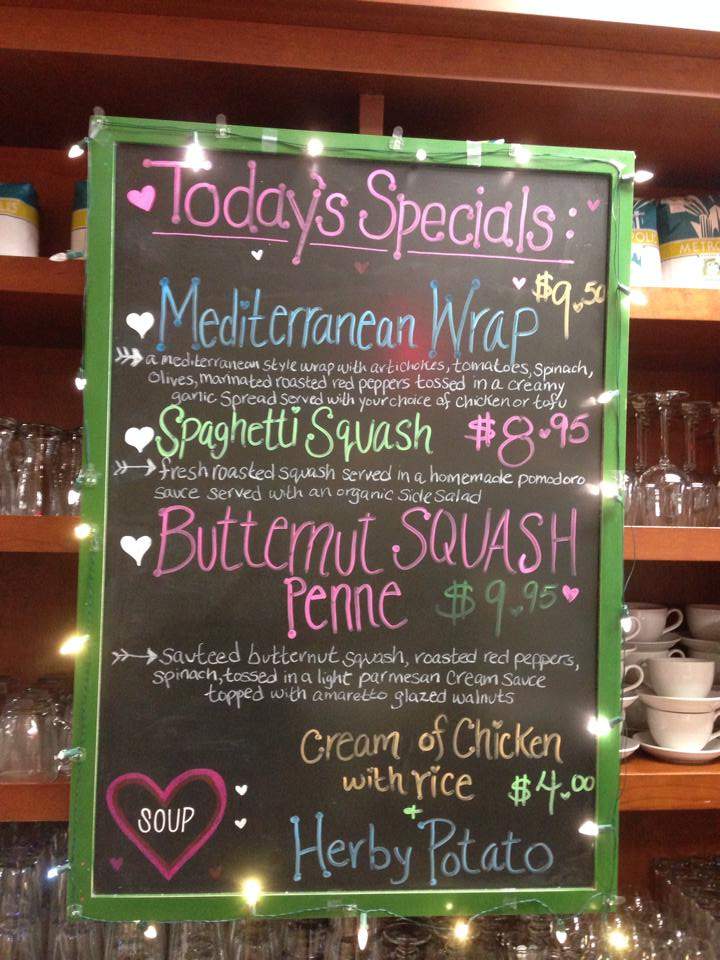 Today's Specials:
Mediterranean Wrap $9.50
a mediterranean style wrap with artichokes, tomatoes, spinach,
olives, marinated roasted red peppers tossed in a creamy
garlic spread served with your choice of chicken or tofu
Spaghetti Squash $8.95
fresh roasted squash served in a homemade pomodoro
sauce served with an organic side salad
Butternut SQUASH
Penne $9.95
sauteed butternut squash, roasted red peppers,
spinach, tossed in a light parmesan cream sauce
topped with amaretto glazed walnuts
Cream of Chicken
with rice $4.00
SOUP
+
Herby Potato